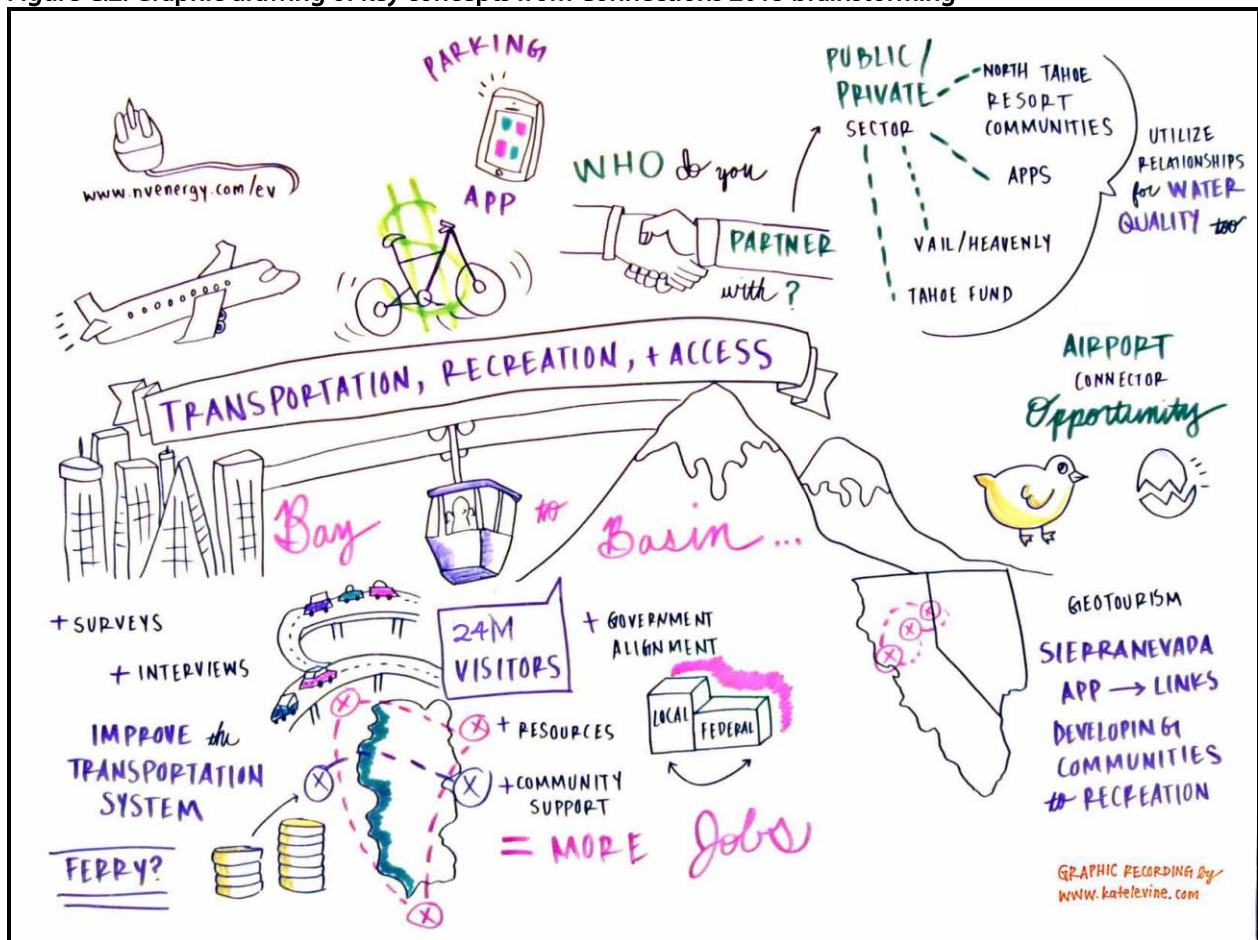 www.nvenergy.com/ev
PARKING
APP
WHO do you
PARTNER
with?
PUBLIC/
PRIVATE
SECTOR
NORTH TAHOE
RESORT
COMMUNITIES
APPS
VAIL/HEAVENLY
TAHOE FUND
UTILIZE
RELATIONSHIPS
for WATER
QUALITY too
TRANSPORTATION, RECREATION, + ACCESS
AIRPORT
CONNECTOR
Opportunity
Bay to Basin...
+ SURVEYS
+ INTERVIEWS
IMPROVE the
TRANSPORTATION
SYSTEM
FERRY?
24M
VISITORS
+ GOVERNMENT
ALIGNMENT
LOCAL
FEDERAL
+ RESOURCES
+ COMMUNITY
SUPPORT
= MORE Jobs
GEOTOURISM
SIERRANEVADA
APP → LINKS
DEVELOPING
COMMUNITIES
to RECREATION
GRAPHIC RECORDING by
www.katelevine.com